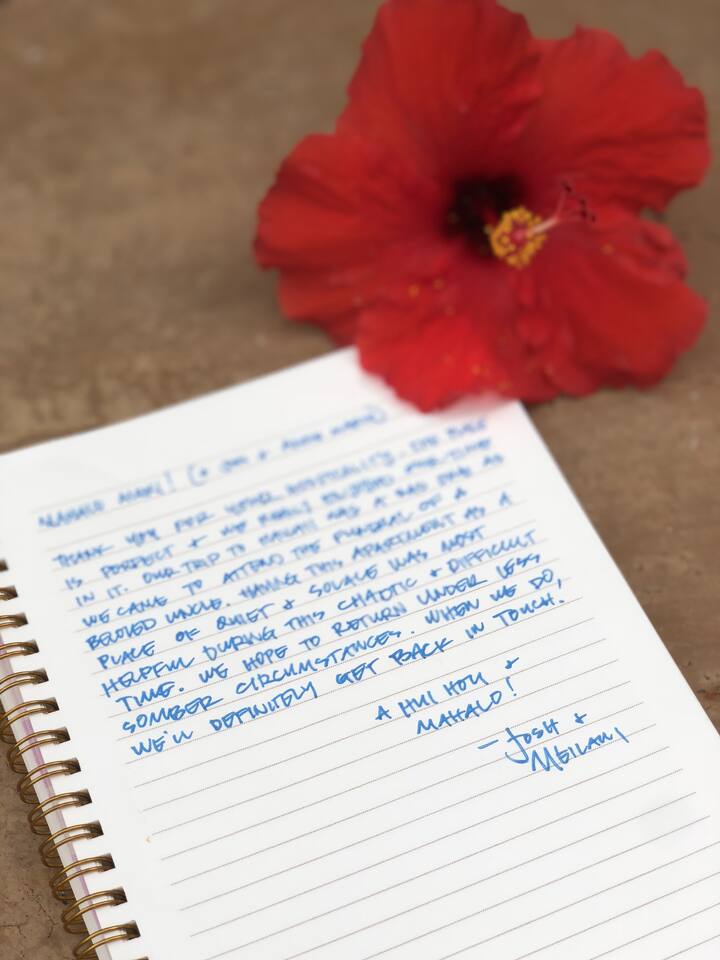 MAHALO
THANK YOU FOR YOUR HOSPITALITY. THE PLACE
IS PERFECT & WE REALLY ENJOYED OUR TIME
IN IT. OUR TRIP TO HAWAII WAS A SAD ONE AS
WE CAME TO ATTEND THE FUNERAL OF A
BELOVED UNCLE. HAVING THIS APARTMENT AS A
PLACE OF QUIET & SOLACE WAS MOST
HELPFUL DURING THIS CHAOTIC & DIFFICULT
TIME. WE HOPE TO RETURN UNDER LESS
SOMBER CIRCUMSTANCES. WHEN WE DO,
WE'LL DEFINITELY GET BACK IN TOUCH.
A HUI HOU &
MAHALO!
- JOSH &
MEILANI